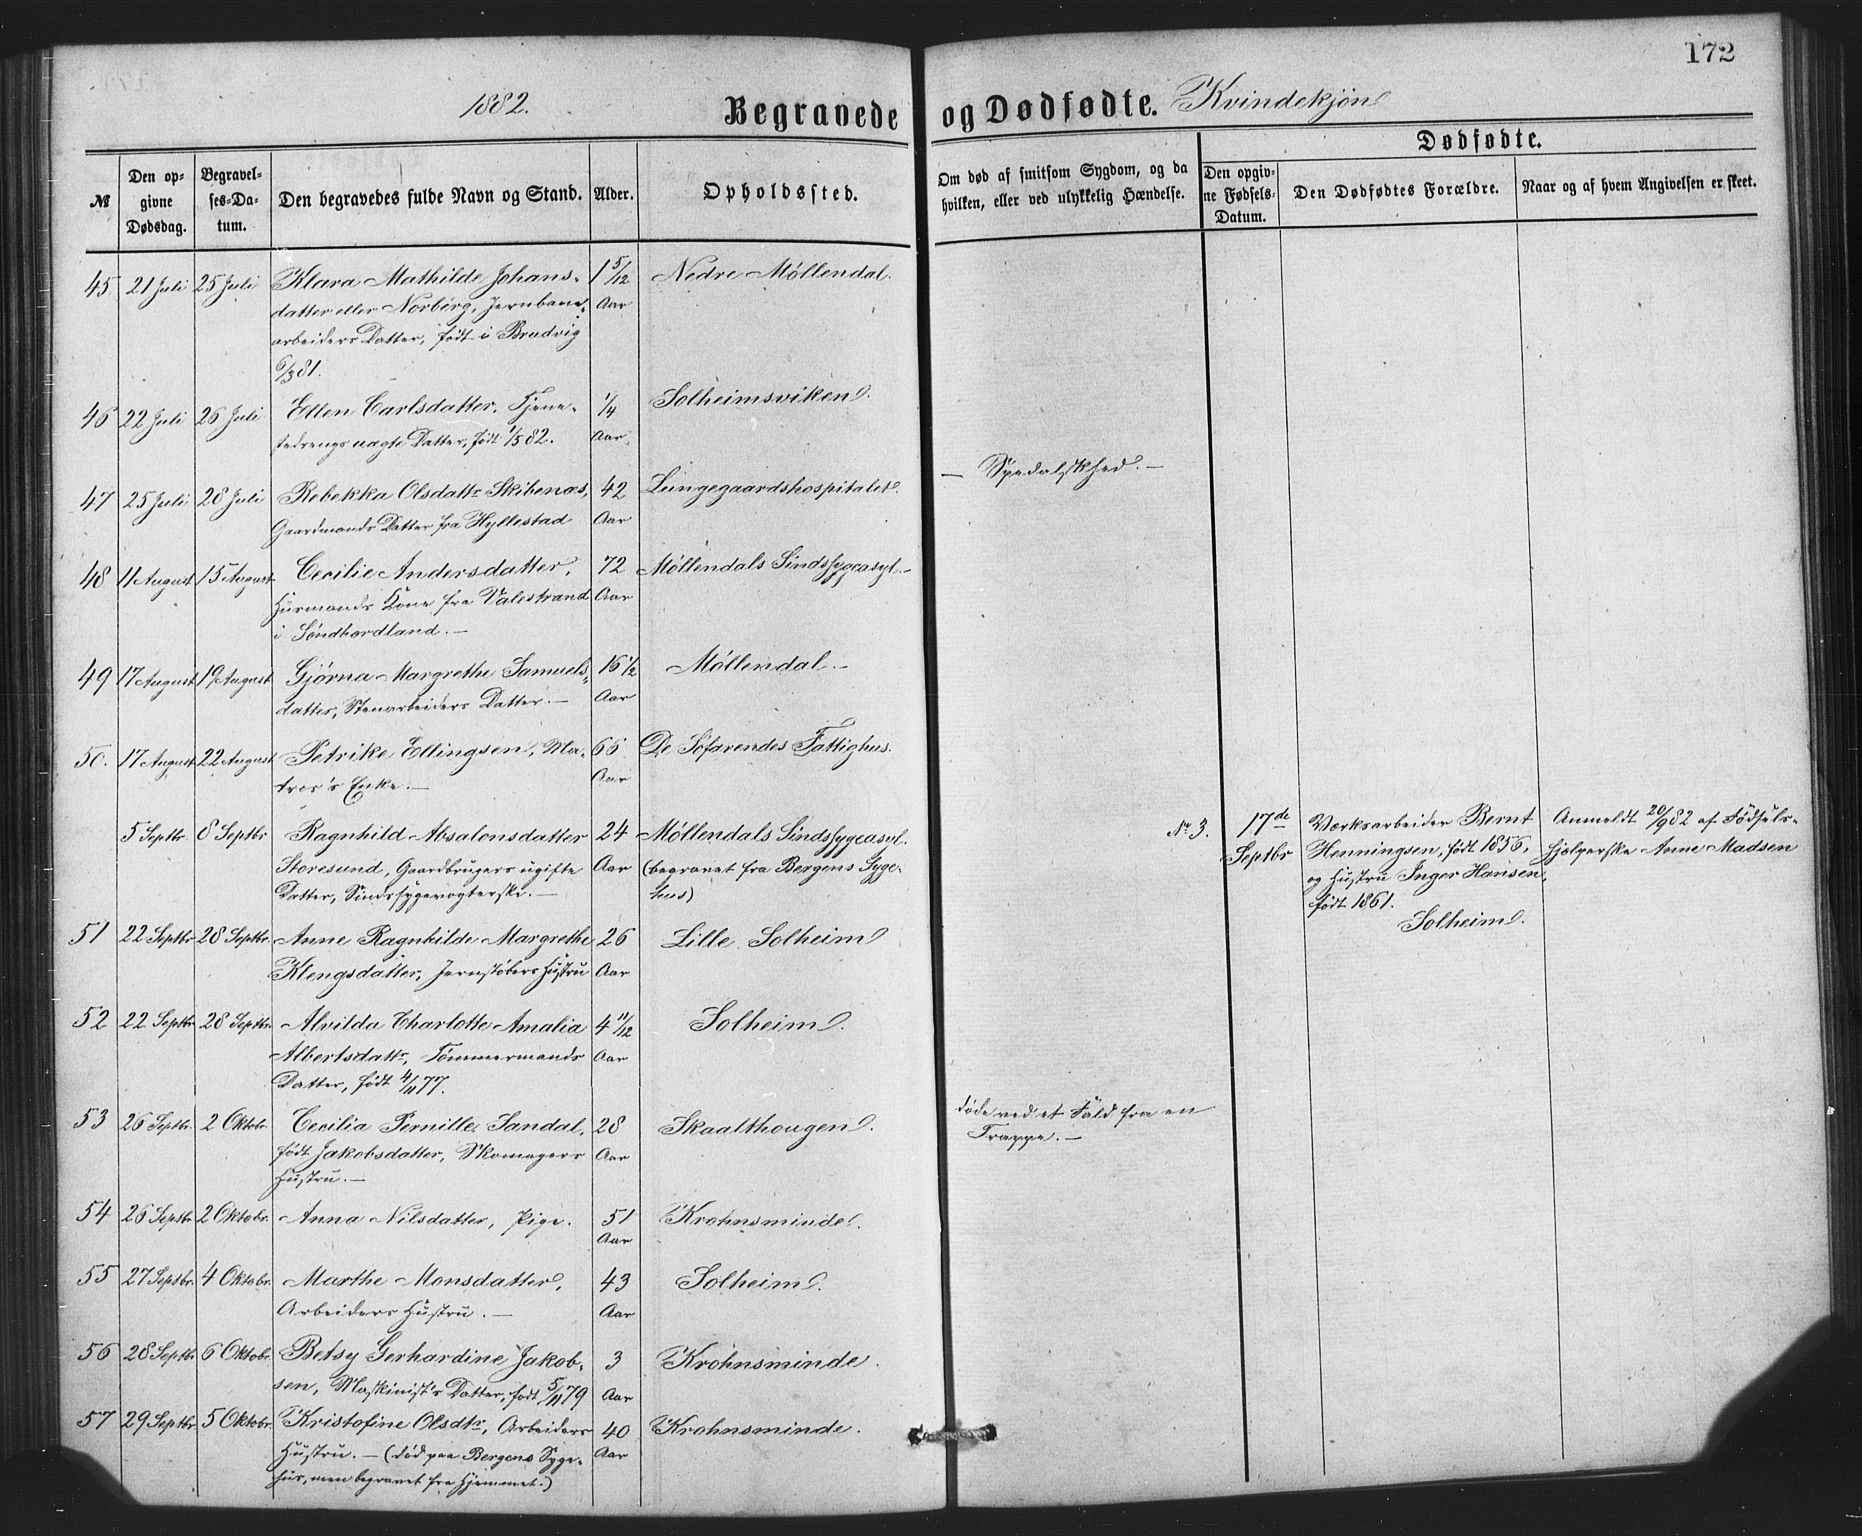 172
1882.
Begravede og Dødfødte. Kvindekjøn
Dødfødte.
№
Den opgivne Dødsdag.
Begravelses-Datum.
Den begravedes fulde Navn og Stand.
Alder.
Opholdssted.
Om død af smitsom Sygdom, og da hvilken, eller ved ulykkelig Hændelse.
Den opgivne Fødsels-Datum.
Den Dødfødtes Forældre.
Naar og af hvem Angivelsen er skeet.
45 21 Juli 25 Juli Klara Mathilde Johans- 1 5/12 Nedre Møllendal.
datter eller Norberg, Jernbane- Aar
arbeiders Datter, født i Brudvig
6/3 81.
46 22 Juli 26 Juli Ellen Carlsdatter, Tjene- 1/4 Solheimsviken.
stedrengs uægte Datter, født 1/5 82. Aar.
47 25 Juli 28 Juli Rebekka Olsdattr Skibenæs, 42 Lungegaardshospitalet. — Spedalskhed. —
Gaardmands Datter fra Hyllestad Aar
48 11 August 15 August Cecilie Andersdatter, 72 Møllendals Sindssygeasyl. —
Husmands Kone fra Valestrand Aar
i Søndhordland. —
49 17 August 19 August Gjørna Margrethe Samuels- 16 1/2 Møllendal —
datter, Stenarbeiders Datter. — Aar
50. 17 August 22 August Petrike Ellingsen, Ma- 66 De Søfarendes Fattighus.
tros's Enke. — Aar
5 Septbr 8 Septbr Ragnhild Absalonsdatter 24 Møllendals Sindssygeasyl.
Storesund, Gaardbrugers ugifte Aar (begravet fra Bergens Syge-
Datter, Sindssygevogterske. — hus)
No 3. 17de Værksarbeider Bernt Anmeldt 20/9 82 af Fødsels-
Septbr Henningsen, født 1856, hjælperske Anne Madsen
og Hustru Inger Hansen,
født 1861.
Solheim.
51 22 Septbr 28 Septbr. Anne Ragnhilde Margrethe 26 Lille Solheim
Klengsdatter, Jernstøbers Hustru Aar
52 22 Septbr 28 Septbr. Alvilda Charlotte Amalia 4 11/12 Solheim.
Albertsdattr, Tømmermands Aar
Datter, født 4/11 77.
53 26 Septbr. 2 Oktobr. Cecilia Pernille Sandal, 28 Skaalthougen. døde ved et Fald fra en
født Jakobsdatter, Skomagers Aar Trappe. —
Hustru. —
54 26 Septbr 2 Oktobr. Anna Nilsdatter, Pige. 51 Krohnsminde.
Aar
55 27 Septbr. 4 Oktobr. Marthe Monsdatter, 43 Solheim.
Arbeiders Hustru. — Aar
56 28 Septbr 6 Oktobr. Betsy Gerhardine Jakob- 3 Krohnsminde.
sen, Maskinist's Datter, født 5/11 79 Aar
57 29 Septbr. 5 Oktobr. Kristofine Olsdtr, Arbeiders 40 Krohnsminde.
Hustru. — (død paa Bergens Syge- Aar
hus, men begravet fra Hjemmet.)